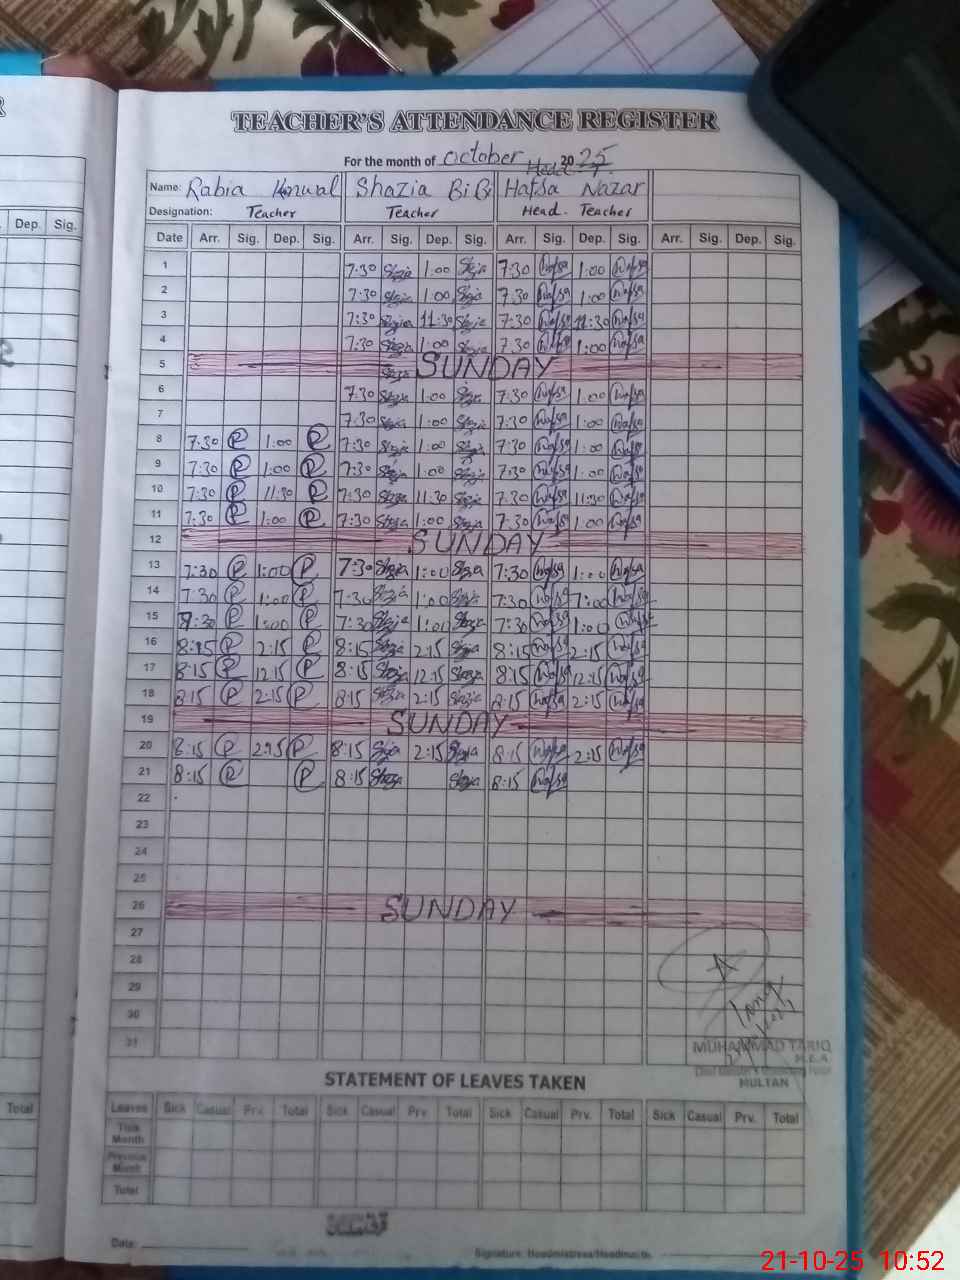 TEACHER'S ATTENDANCE REGISTER
For the month of October 2025
Head. T.
Name: Rabia Shazia BiBi Hafsa Nazar
Designation: Teacher Teacher Head. Teacher
Dep. Sig. Date Arr. Sig. Dep. Sig. Arr. Sig. Dep. Sig. Arr. Sig. Dep. Sig. Arr. Sig. Dep. Sig.
1 7:30 Shazia 1:00 Shazia 7:30 Hafsa 1:00 Hafsa
2 7:30 Shazia 1:00 Shazia 7:30 Hafsa 1:00 Hafsa
3 7:30 Shazia 11:30 Shazia 7:30 Hafsa 11:30 Hafsa
4 7:30 Shazia 1:00 Shazia 7:30 Hafsa 1:00 Hafsa
5 SUNDAY
6 7:30 Shazia 1:00 Shazia 7:30 Hafsa 1:00 Hafsa
7 7:30 Shazia 1:00 Shazia 7:30 Hafsa 1:00 Hafsa
8 7:30 R 1:00 R 7:30 Shazia 1:00 Shazia 7:30 Hafsa 1:00 Hafsa
9 7:30 R 1:00 R 7:30 Shazia 1:00 Shazia 7:30 Hafsa 1:00 Hafsa
10 7:30 R 11:30 R 7:30 Shazia 11:30 Shazia 7:30 Hafsa 11:30 Hafsa
11 7:30 R 1:00 R 7:30 Shazia 1:00 Shazia 7:30 Hafsa 1:00 Hafsa
12 SUNDAY
13 7:30 R 1:00 R 7:30 Shazia 1:00 Shazia 7:30 Hafsa 1:00 Hafsa
14 7:30 R 1:00 R 7:30 Shazia 1:00 Shazia 7:30 Hafsa 7:00 Hafsa
15 7:30 R 1:00 R 7:30 Shazia 1:00 Shazia 7:30 Hafsa 1:00 Hafsa
16 8:15 R 2:15 R 8:15 Shazia 2:15 Shazia 8:15 Hafsa 2:15 Hafsa
17 8:15 R 12:15 R 8:15 Shazia 12:15 Shazia 8:15 Hafsa 12:15 Hafsa
18 8:15 R 2:15 R 8:15 Shazia 2:15 Shazia 8:15 Hafsa 2:15 Hafsa
19 SUNDAY
20 8:15 R 2:15 R 8:15 Shazia 2:15 Shazia 8:15 Hafsa 2:15 Hafsa
21 8:15 R R 8:15 Shazia Shazia 8:15 Hafsa
22
23
24
25
26 SUNDAY
27
28
29
30
31
MUHAMMAD TARIQ
M.E.A.
MULTAN
STATEMENT OF LEAVES TAKEN
Total Leaves Sick Casual Prv. Total Sick Casual Prv. Total Sick Casual Prv. Total Sick Casual Prv. Total
This Month
Previous Month
Total
Date:
Signature: Headmistress/Headmaster
21-10-25 10:52